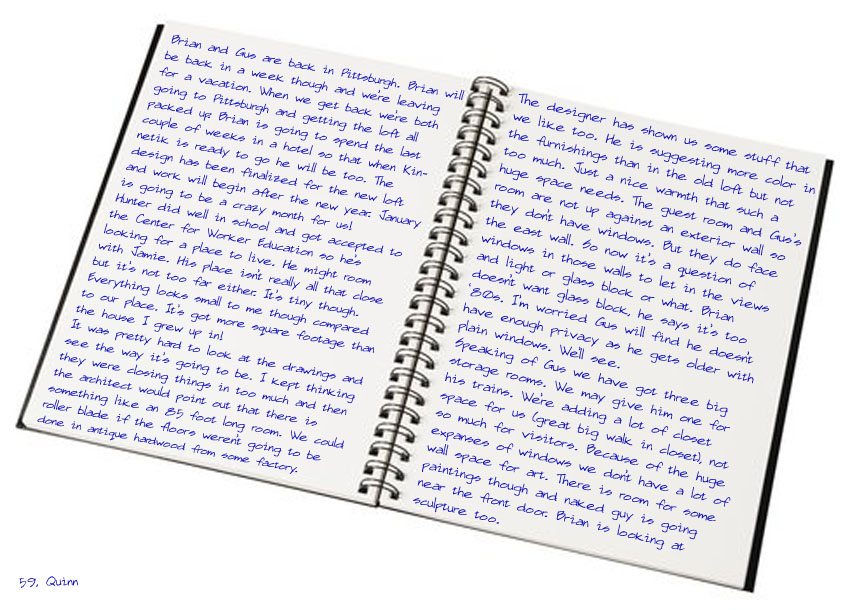 Brian and Gus are back in Pittsburgh. Brian will
be back in a week though and we're leaving
for a vacation. When we get back we're both
going to Pittsburgh and getting the loft all
packed up. Brian is going to spend the last
couple of weeks in a hotel so that when Kin-
netik is ready to go he will be too. The
design has been finalized for the new loft
and work will begin after the new year. January
is going to be a crazy month for us!
Hunter did well in school and got accepted to
the Center for Worker Education so he's
looking for a place to live. He might room
with Jamie. His place isn't really all that close
but it's not too far either. It's tiny though.
Everything looks small to me though compared
to our place. It's got more square footage than
the house I grew up in!
It was pretty hard to look at the drawings and
see the way it's going to be. I kept thinking
they were closing things in too much and then
the architect would point out that there is
something like an 85 foot long room. We could
roller blade if the floors weren't going to be
done in antique hardwood from some factory.
The designer has shown us some stuff that
we like too. He is suggesting more color in
the furnishings than in the old loft but not
too much. Just a nice warmth that such a
huge space needs. The guest room and Gus's
room are not up against an exterior wall so
they don't have windows. But they do face
the east wall. So now it's a question of
windows in those walls to let in the views
and light or glass block or what. Brian
doesn't want glass block, he says it's too
'80s. I'm worried Gus will find he doesn't
have enough privacy as he gets older with
plain windows. We'll see.
Speaking of Gus we have got three big
storage rooms. We may give him one for
his trains. We're adding a lot of closet
space for us (great big walk in closet), not
so much for visitors. Because of the huge
expanses of windows we don't have a lot of
wall space for art. There is room for some
paintings though and naked guy is going
near the front door. Brian is looking at
sculpture too.
59, Quinn